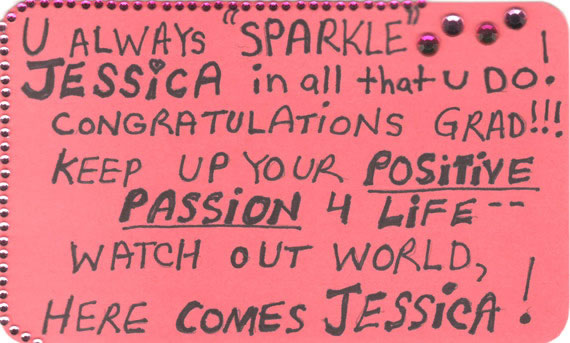 U ALWAYS "SPARKLE"
JESSiCA in all that U DO!
CONGRATULATiONS GRAD!!!
KEEP UP YOUR POSiTiVE
PASSiON 4 LiFE--
WATCH OUT WORLD,
HERE COMES JESSiCA!